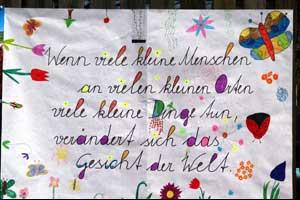 Wenn viele kleine Menschen
an vielen kleinen Orten
viele kleine Dinge tun,
verändert sich das
Gesicht der Welt.